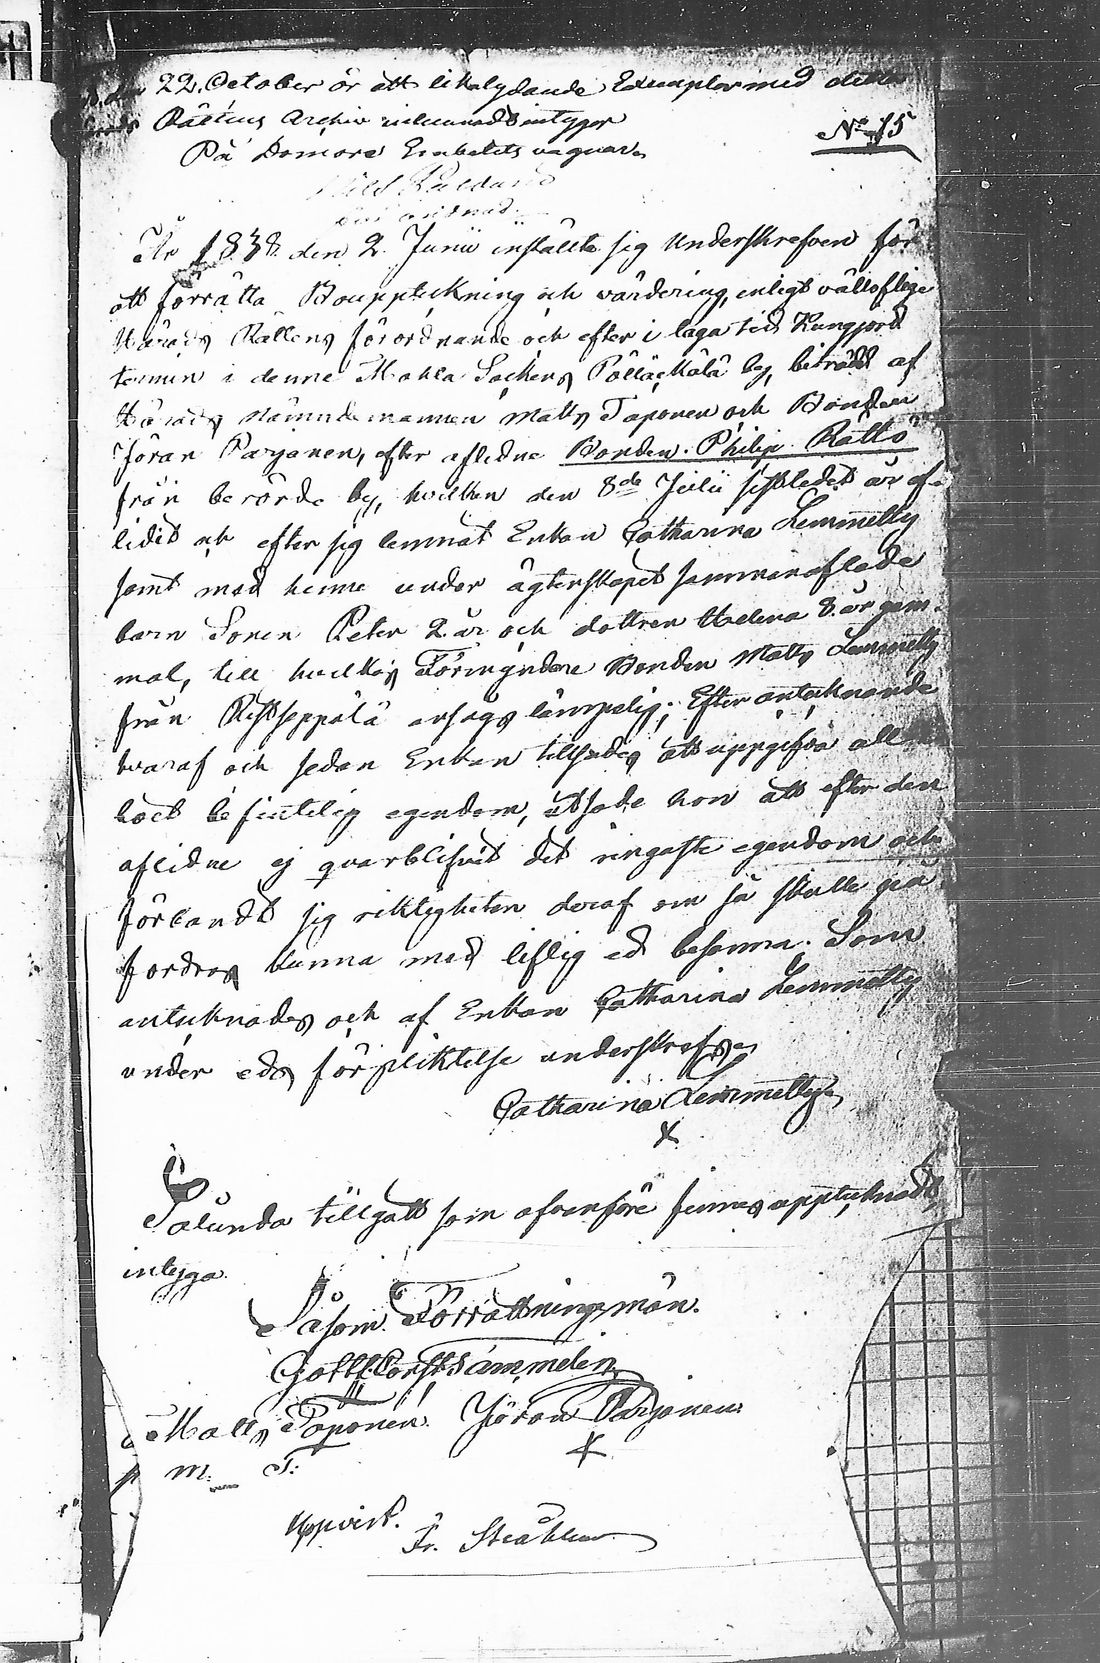 22. October är ett likalydande Exemplar med detta
Rättens Archiv inlemnadt intygar
På Domare Embetets vagnar
No 15
År 1838. den 2. Junii inställte sig Underskrefven för
att förrätta Bouppteckning och värdering, enligt välloflige
Härads Rättens förordnande och efter i laga tid Kungjord
termin i denne Mohla Sockens Pölläkkälä by, biträdd af
Härads nämndemannen Matts Taponen och Bonden
Jöran Parjanen, efter aflidne Bonden Philip Rättö
från berörde by, hvilken den 8de Julii sistledet år af-
lidit och efter sig lemnat Enkan Catharina Lemmetty
samt med henne under ägtenskapet sammanaflade
barn Sonen Peter 2. år och dottren Helena 8. år gam-
mal, till hvilkas Förmyndare Bonden Matts Lemmetty
från Ristseppälä ansågs lämpelig; Efter antecknande
hvaraf och sedan Enkan tillsades att uppgifva all
boets befintelig egendom, utsade hon att efter den
aflidne ej qvarblifvit det ringaste egendom och
förbandt sig riktigheten deraf om så skulle
fordras kunna med liflig ed besanna. Som
antecknades och af Enkan Catharina Lemmetty
under eds förpliktelse underskrefs
Catharina Lemmetty
X
Sålunda tillgått som ofvanföre finnes upptecknadt,
intyga.
Såsom Förrättningsmän.
Matts Taponen. Jöran Parjanen
M. T.
Uppvist. Fr. Stråhlman